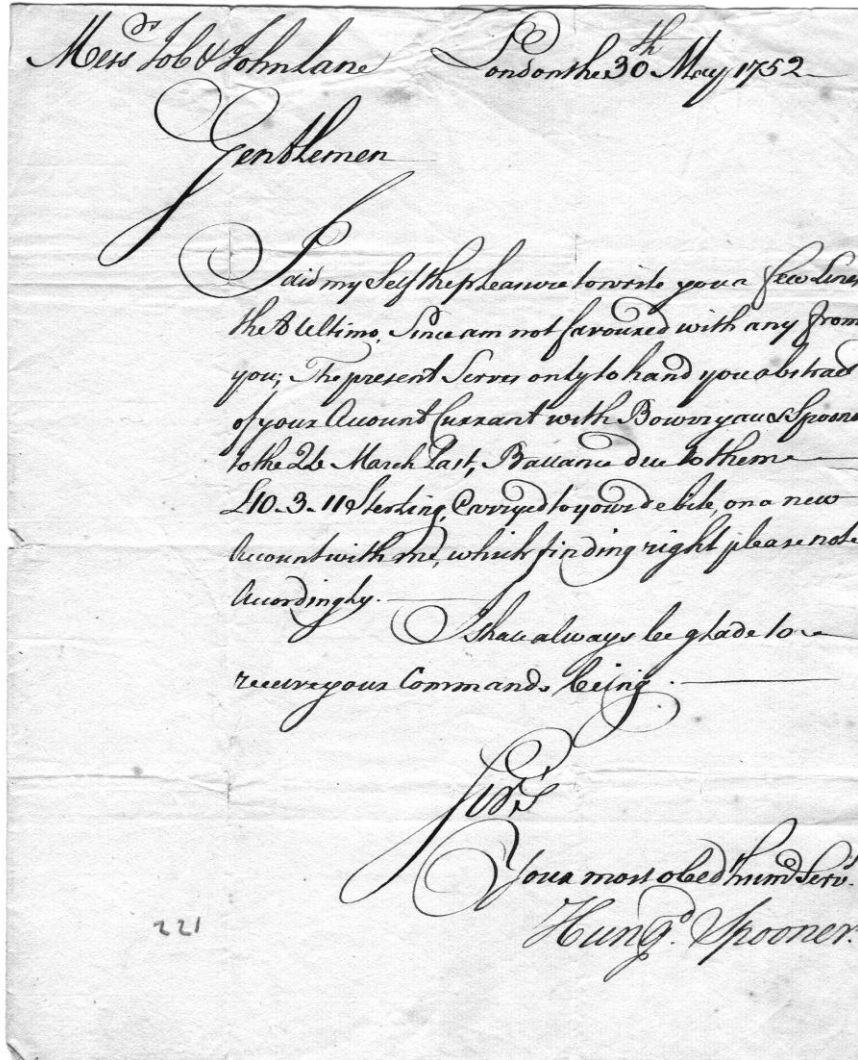 Mess.rs Job & John Lane London the 30th May 1752
Gentlemen
I did my Self the pleasure to write you a few Lines
the 8 Ultimo, Since am not favoured with any from
you; The present Serves only to hand you abstract
of your Account Currant with Bowrryau & Spooner
to the 26 March Last, Ballance due to them
£10-3-11 Sterling, Carryed to your debite, on a new
Account with me, which finding right please note
Accordingly.
I shall always be glade to
receive your Commands being.
Sir's
Your most obed.t hum.e Serv.t
Hung.d Spooner.
221